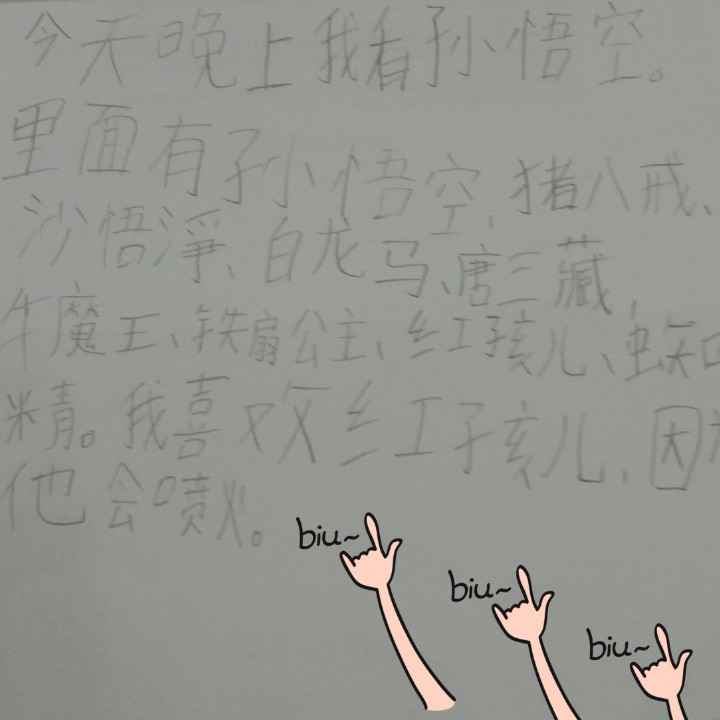 今天晚上我看孙悟空。
里面有孙小悟空、猪八戒、
沙悟淨、白龙马、唐三藏,
牛魔王、铁扇公主、红孩儿、蜘
精。我喜欢红孩儿,因
他会喷火。
biu~
biu~
biu~